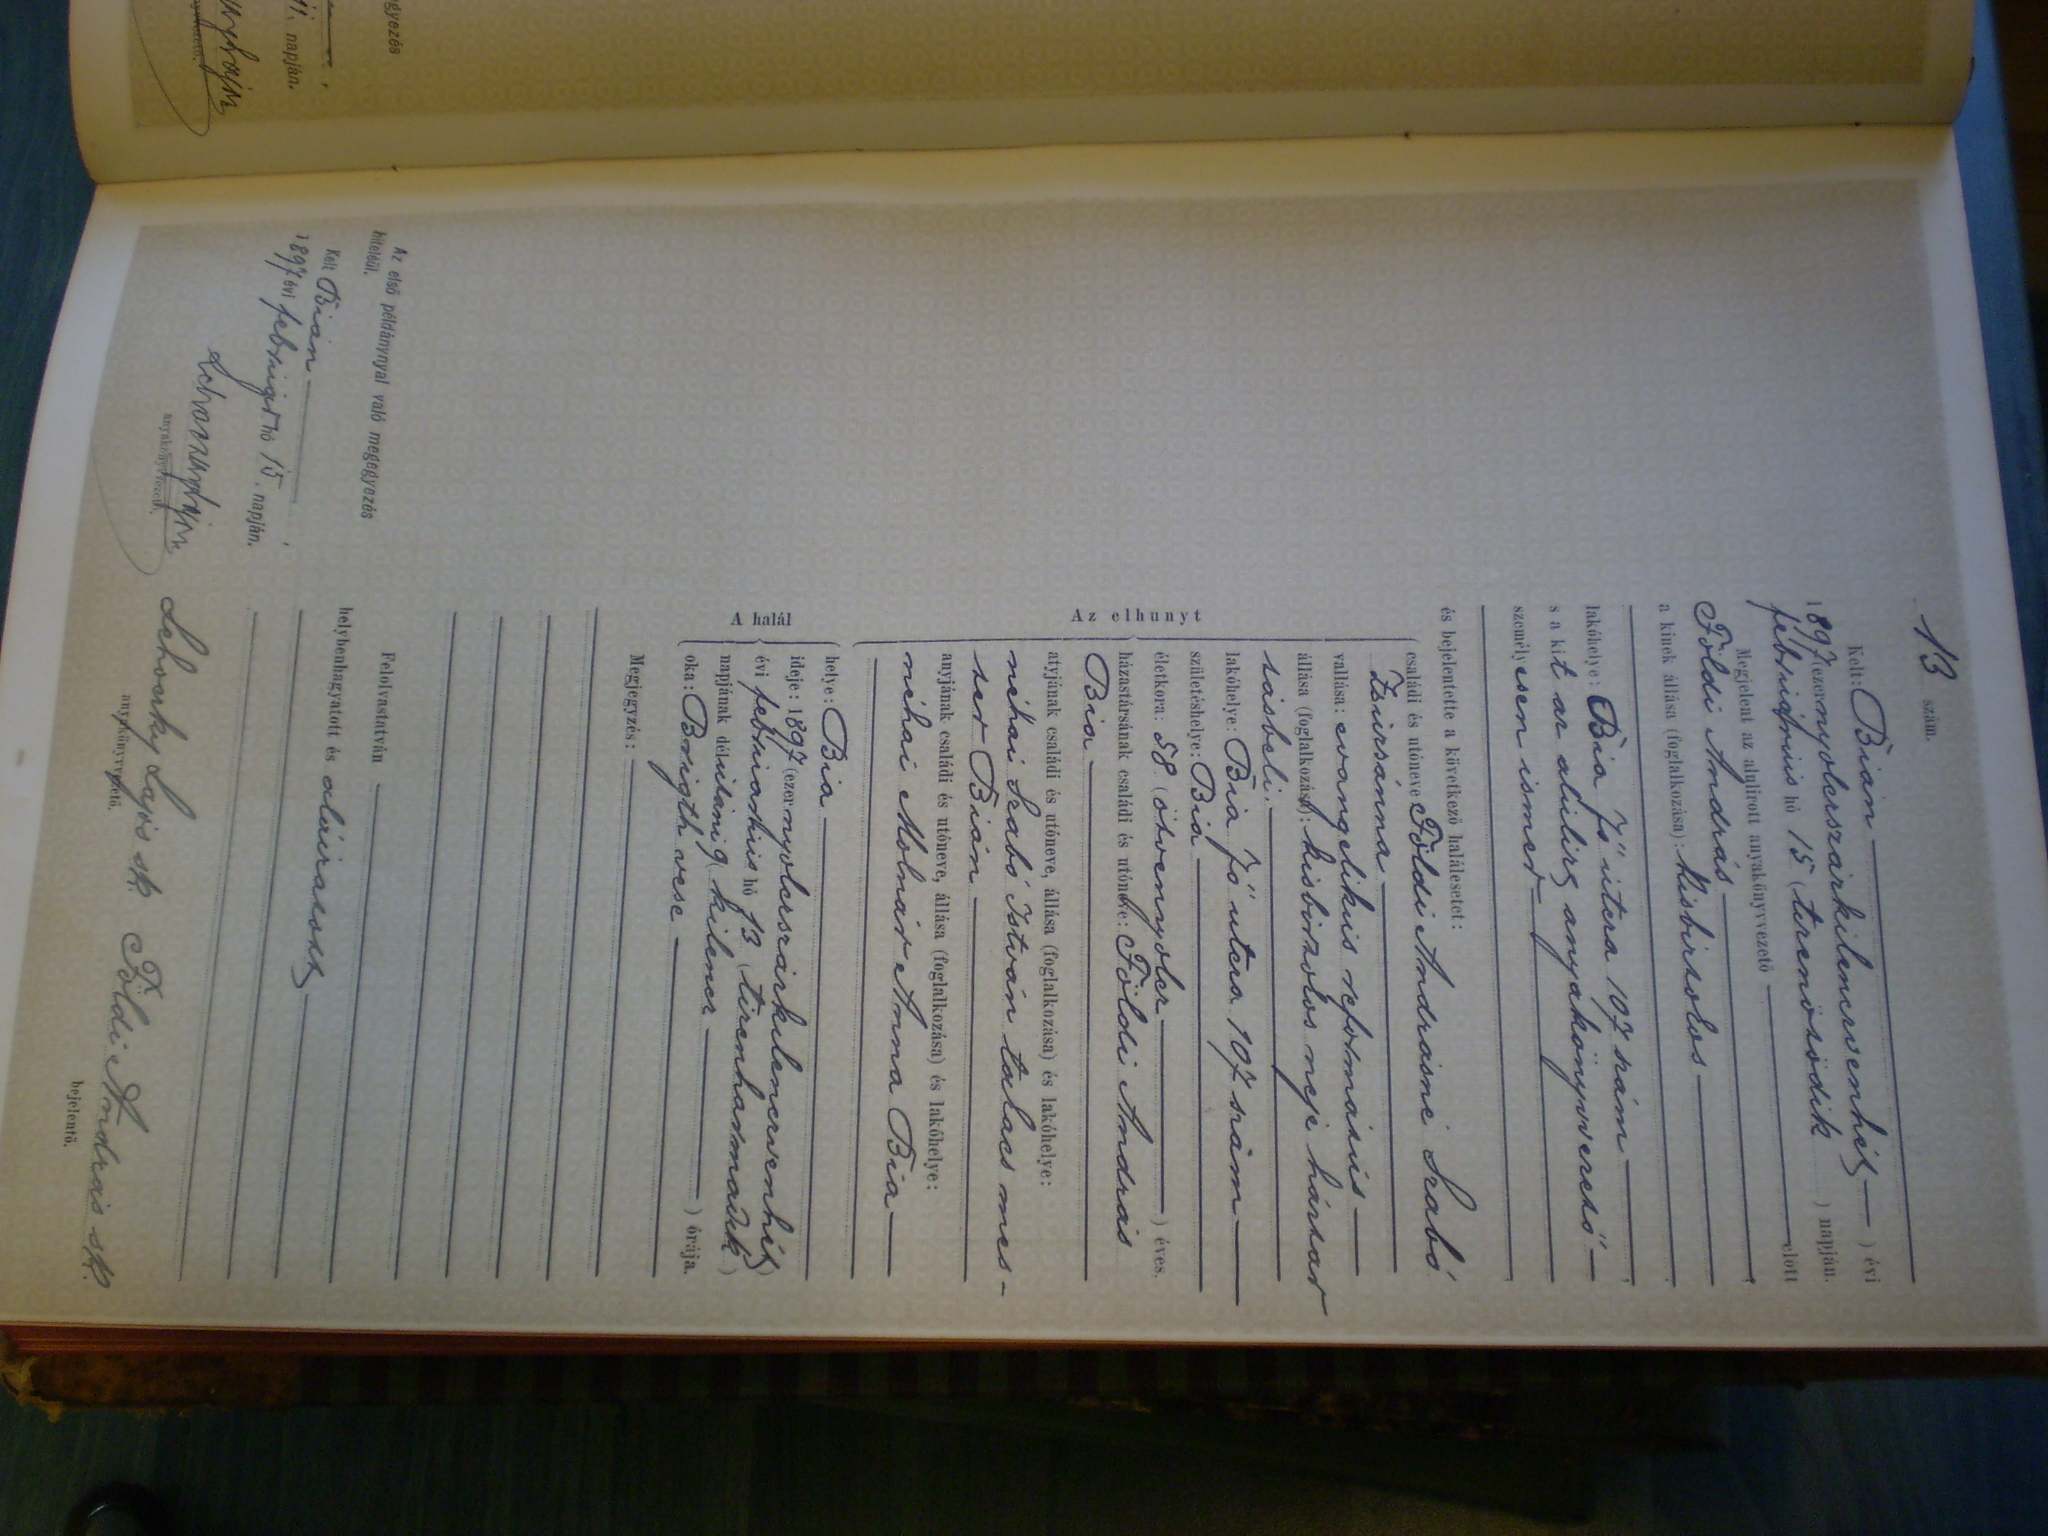 13 szám.
Kelt: Bián
1897 (ezernyolcszázkilencvenhét) évi
februárius hó 15 (tizenötödik) napján.
Megjelent az alulirott anyakönyvvezető előtt
Földi András
a kinek állása (foglalkozása): kisbirtokos
lakóhelye: Bia fő utcza 107 szám
s a kit az alulirt anyakönyvvezető
személyesen ismer
és bejelentette a következő halálesetet:
Az elhunyt
családi és utóneve Földi Andrásné Szabó
Zsuzsánna
vallása: evangelikus református
állása (foglalkozása): kisbirtokos neje háztar
tásbeli.
lakóhelye: Bia fő utcza 107 szám
születéshelye: Bia
életkora: 58 (ötvennyolcz) éves.
házastársának családi és utóneve: Földi András
Bia
atyjának családi és utóneve, állása (foglalkozása) és lakóhelye:
néhai Szabó István takács mes-
ter Bián
anyjának családi és utóneve, állása (foglalkozása) és lakóhelye:
néhai Molnár Anna Bia
A halál
helye: Bia
ideje: 1897 (ezernyolcszázkilencvenhét)
évi februárius hó 13 (tizenharmadik)
napjának délutáni 9 (kilencz) órája.
oka: Brigth vese
Megjegyzés:
Felolvastatván
helybenhagyatott és aláiratott
Lehoczky Lajos sk.
anyakönyvvezető.
Földi András sk.
bejelentő.
Az első példánynyal való megegyezés
hiteléül.
Kelt Bián
1897 évi február hó 15. napján.
anyakönyvvezető.
gyezés
11. napján.